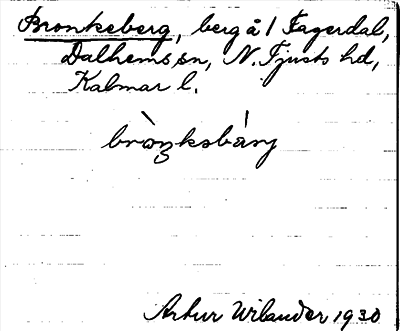 Bronkeberg, berg å 1 Fagerdal,
Dalhems sn, N. Tjusts hd,
Kalmar l.
Artur Wilander 1930